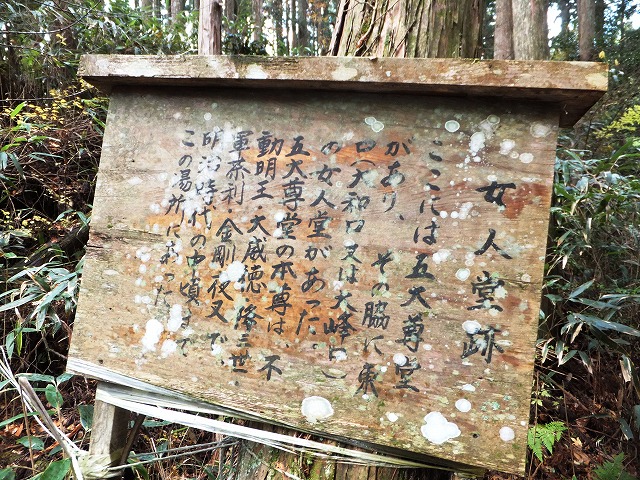 女人堂跡
ここには五大尊堂
があり、その脇に東
口(大和口又は大峰口)
の女人堂があった。
五大尊堂の本尊は、不
動明王・大威徳・降三世・
軍荼利・金剛夜叉で、
明治時代の中頃まで
この場所にあった。